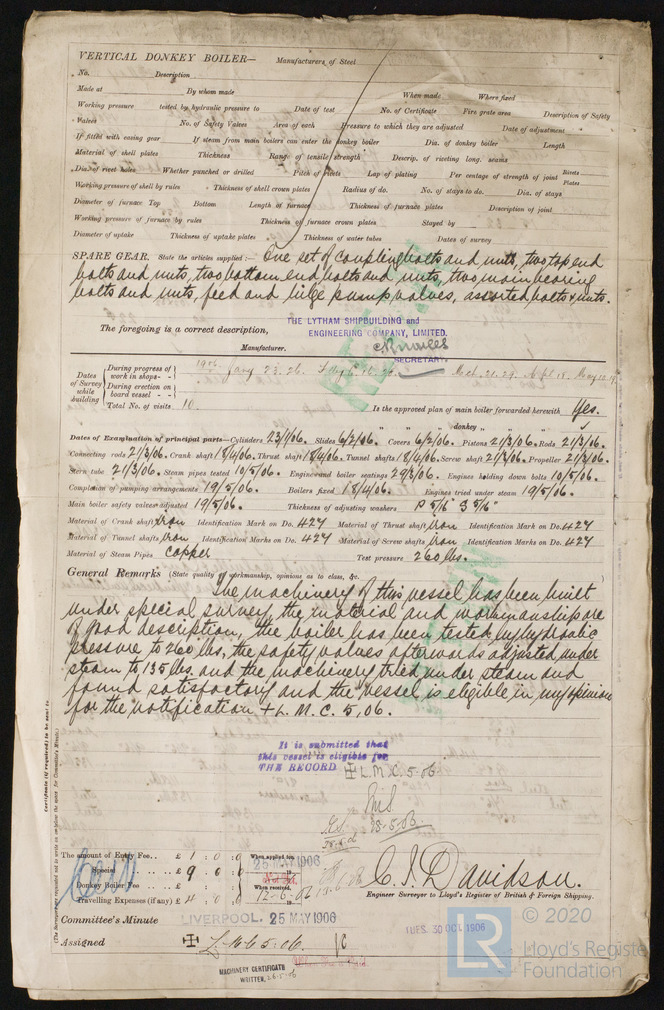 VERTICAL DONKEY BOILER— Manufacturers of Steel
No. Description
Made at By whom made When made Where fixed
Working pressure tested by hydraulic pressure to Date of test No. of Certificate Fire grate area Description of Safety
Valves No. of Safety Valves Area of each Pressure to which they are adjusted Date of adjustment
If fitted with easing gear If steam from main boilers can enter the donkey boiler Dia. of donkey boiler Length
Material of shell plates Thickness Range of tensile strength Descrip. of riveting long. seams
Dia. of rivet holes Whether punched or drilled Pitch of rivets Lap of plating Per centage of strength of joint Rivets Plates
Working pressure of shell by rules Thickness of shell crown plates Radius of do. No. of stays to do. Dia. of stays
Diameter of furnace Top Bottom Length of furnace Thickness of furnace plates Description of joint
Working pressure of furnace by rules Thickness of furnace crown plates Stayed by
Diameter of uptake Thickness of uptake plates Thickness of water tubes Dates of survey
SPARE GEAR. State the articles supplied:— One set of coupling bolts and nuts, two top end
bolts and nuts, two bottom end bolts and nuts, two main bearing
bolts and nuts, feed and bilge pump valves, assorted bolts & nuts.
THE LYTHAM SHIPBUILDING and
The foregoing is a correct description, ENGINEERING COMPANY, LIMITED.
Manufacturer.
SECRETARY
Dates of Survey while building
During progress of work in shops - - 1906. Jany 23. 26. Feby 6. 16. 26. Mch. 21. 29. Apl 18. May 10. 19
During erection on board vessel - -
Total No. of visits 10. Is the approved plan of main boiler forwarded herewith Yes.
" " " donkey " " "
Dates of Examination of principal parts—Cylinders 23/1/06. Slides 6/2/06. Covers 6/2/06. Pistons 21/3/06. Rods 21/3/06.
Connecting rods 21/3/06. Crank shaft 18/4/06. Thrust shaft 18/4/06. Tunnel shafts 18/4/06. Screw shaft 21/3/06. Propeller 21/3/06.
Stern tube 21/3/06. Steam pipes tested 10/5/06. Engine and boiler seatings 29/3/06. Engines holding down bolts 10/5/06.
Completion of pumping arrangements 19/5/06. Boilers fixed 18/4/06. Engines tried under steam 19/5/06.
Main boiler safety valves adjusted 19/5/06. Thickness of adjusting washers P 5/16" S 5/16"
Material of Crank shaft Iron Identification Mark on Do. 427 Material of Thrust shaft Iron Identification Mark on Do. 427
Material of Tunnel shafts Iron Identification Marks on Do. 427 Material of Screw shafts Iron Identification Marks on Do. 427
Material of Steam Pipes Copper Test pressure 260 lbs.
General Remarks (State quality of workmanship, opinions as to class, &c.
The machinery of this vessel has been built
under special survey, the material and workmanship are
of good description, the boiler has been tested by hydraulic
pressure to 260 lbs, the safety valves afterwards adjusted under
steam to 135 lbs, and the machinery tried under steam and
found satisfactory and the vessel is eligible in my opinion
for the notification + L. M. C. 5, 06.
It is submitted that
this vessel is eligible for
THE RECORD + L. M. C. 5-06
28-5-06
Certificate (if required) to be sent to
The amount of Entry Fee.. £ 1 : 0 : 0 When applied for,
Special .. .. £ 9 : 0 : 0 25 MAY 1906
Donkey Boiler Fee .. £ : : When received,
Travelling Expenses (if any) £ 4 : 0 : 0 12-6-06
C. I. Davidson.
Engineer Surveyor to Lloyd's Register of British & Foreign Shipping.
Committee's Minute LIVERPOOL. 25 MAY 1906 TUES. 30 OCT 1906
Assigned + L. M. C. 5. 06.
MACHINERY CERTIFICATE
WRITTEN. 26.5.06
LR © 2020
Lloyd's Register
Foundation